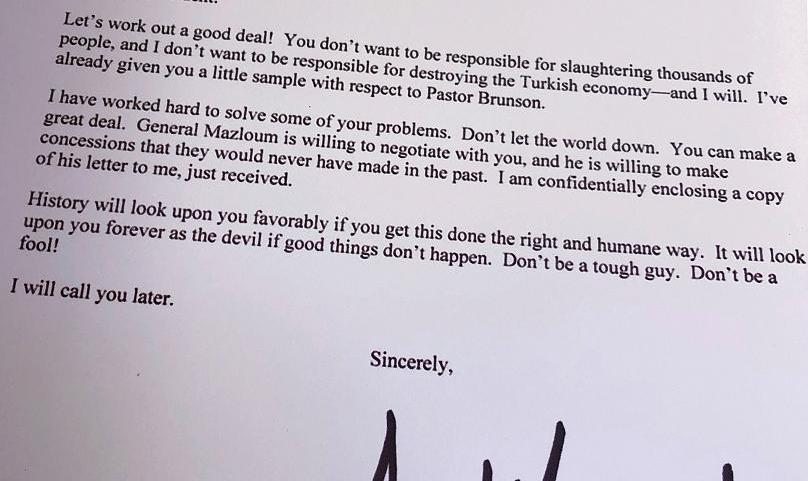 Let's work out a good deal!  You don't want to be responsible for slaughtering thousands of
people, and I don't want to be responsible for destroying the Turkish economy—and I will.  I've
already given you a little sample with respect to Pastor Brunson.
I have worked hard to solve some of your problems.  Don't let the world down.  You can make a
great deal.  General Mazloum is willing to negotiate with you, and he is willing to make
concessions that they would never have made in the past.  I am confidentially enclosing a copy
of his letter to me, just received.
History will look upon you favorably if you get this done the right and humane way.  It will look
upon you forever as the devil if good things don't happen.  Don't be a tough guy.  Don't be a
fool!
I will call you later.
Sincerely,